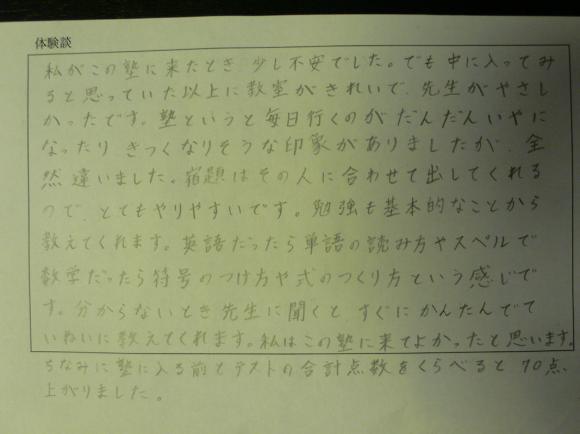 体験談
私がこの塾に来たとき、少し不安でした。でも中に入ってみ
ると思っていた以上に教室がきれいで、先生がやさし
かったです。塾というと毎日行くのがだんだんいやに
なったり、きつくなりそうな印象がありましたが、全
然違いました。宿題はその人に合わせて出してくれる
ので、とてもやりやすいです。勉強も基本的なことから
教えてくれます。英語だったら単語の読み方やスペルで
数学だったら符号のつけ方や式のつくり方という感じで
す。分からないとき先生に聞くと、すぐにかんたんでて
いねいに教えてくれます。私はこの塾に来てよかったと思います。
ちなみに塾に入る前とテストの合計点数をくらべると70点、
上がりました。